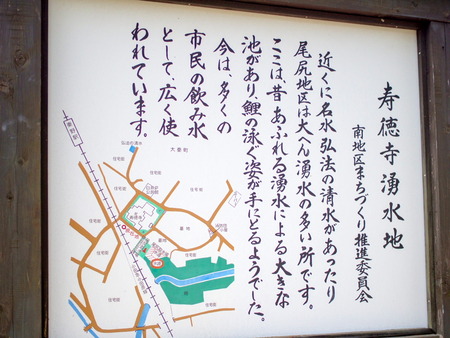 寿徳寺湧水地
南地区まちづくり推進委員会
近くに名水 弘法の清水があったり
尾尻地区は大へん湧水の多い所です。
ここは、昔あふれる湧水による大きな
池があり、鯉の泳ぐ姿が手にとるようでした。
今は、多くの
市民の飲み水
として、広く使
われています。
秦野駅
弘法の清水
大秦町
住宅街
住宅街
住宅街
住宅街
住宅街
墓地
住宅街
住宅街
住宅街
住宅街